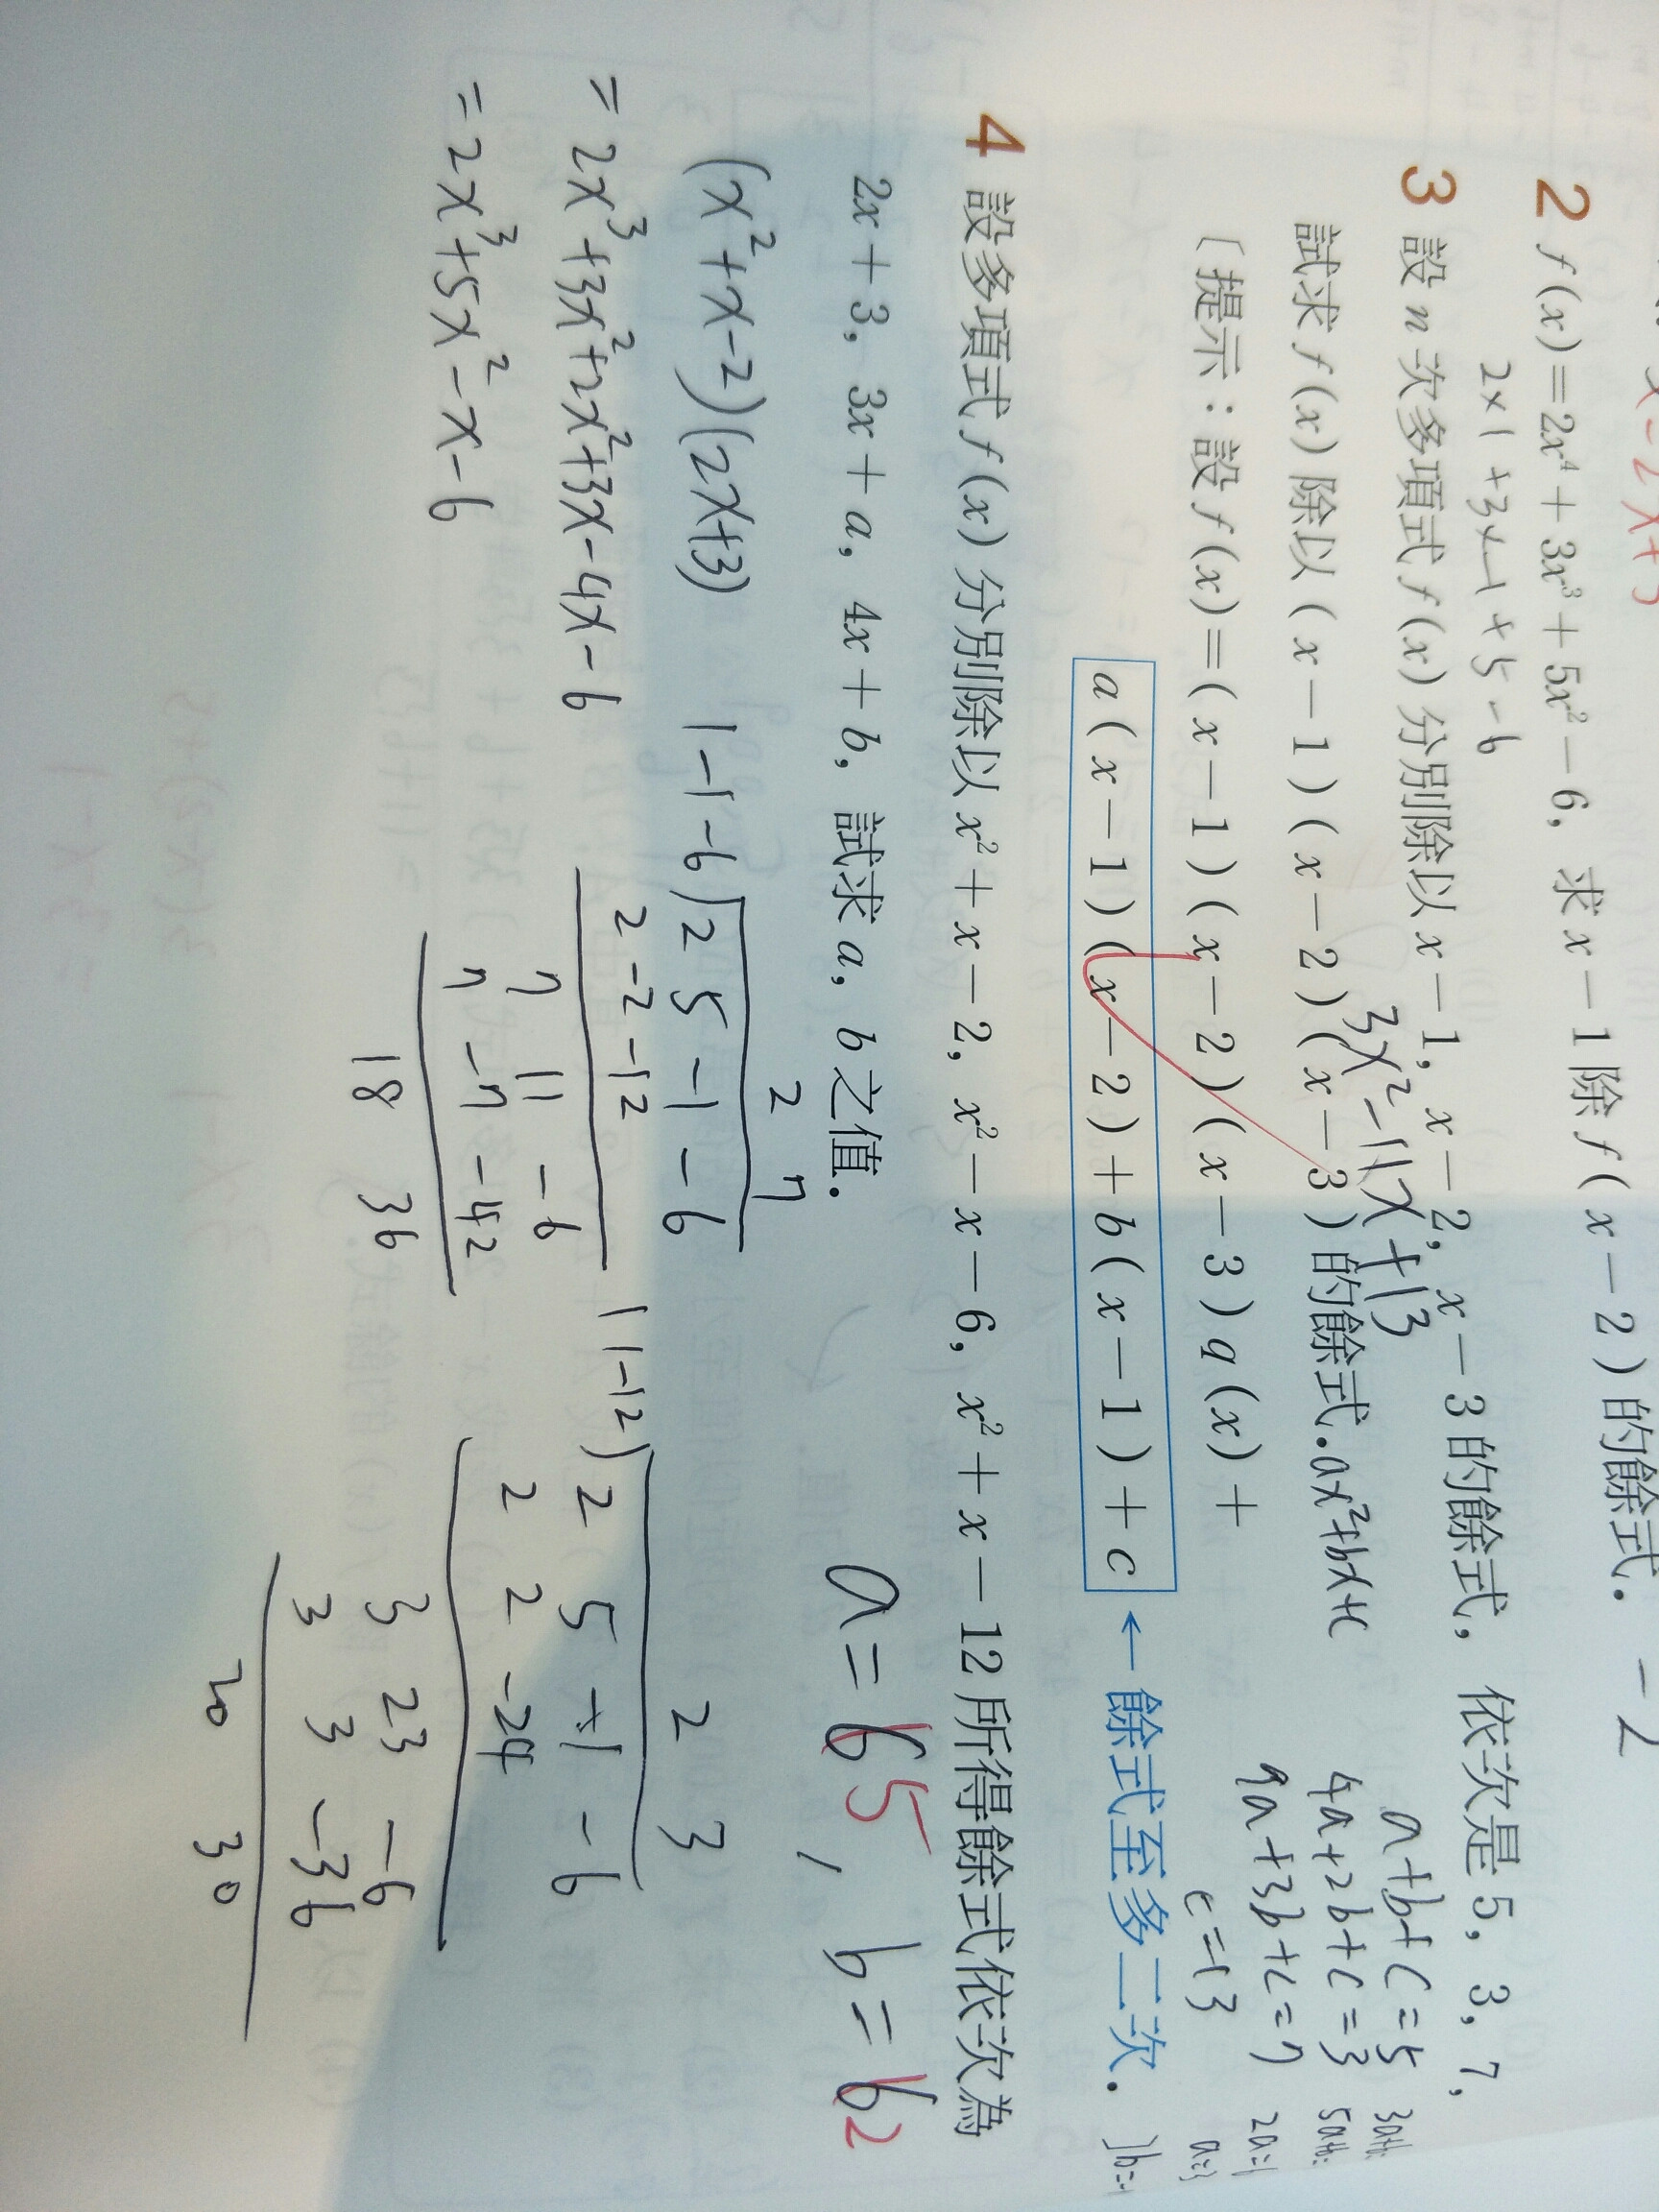 2 f(x)=2x⁴+3x³+5x²-6, 求 x-1 除 f(x-2) 的餘式. -2
2×1+3×-1+5-6
3 設 n 次多項式 f(x) 分別除以 x-1, x-2, x-3 的餘式, 依次是 5, 3, 7,
3x²-11x+13
試求 f(x) 除以 (x-1)(x-2)(x-3) 的餘式. ax²+bx+c
a+b+c=5
4a+2b+c=3
9a+3b+c=7
c=13
2a=
a=3
〔提示:設 f(x)=(x-1)(x-2)(x-3)q(x)+
a(x-1)(x-2)+b(x-1)+c ← 餘式至多二次.
4 設多項式 f(x) 分別除以 x²+x-2, x²-x-6, x²+x-12 所得餘式依次為
2x+3, 3x+a, 4x+b, 試求 a, b 之值.
a=6 5, b=6 2
(x²+x-2)(2x+3)
=2x³+3x²+2x²+3x-4x-6
=2x³+5x²-x-6
2 7
1-1-6)2 5 -1 -6
2 -2 -12
7 11 -6
7 -7 -42
18 36
2 3
1 1-12)2 5 -1 -6
2 2 -24
3 23 -6
3 3 -36
20 30